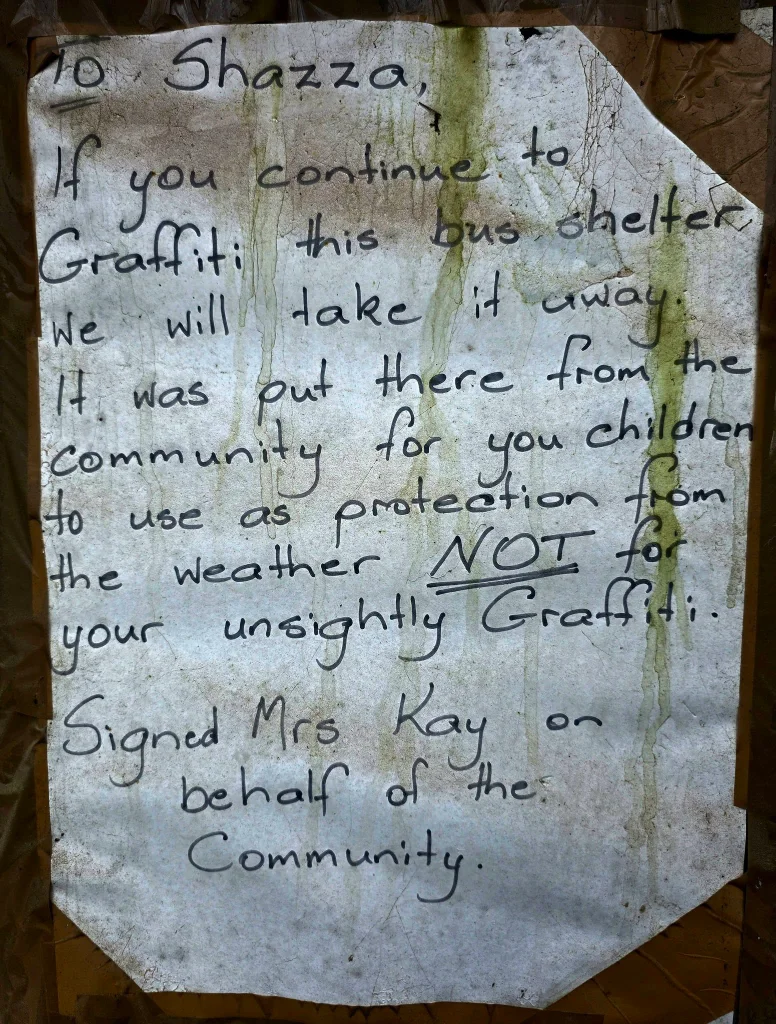 To Shazza,
If you continue to
Graffiti this bus shelter
we will take it away.
It was put there from the
community for you children
to use as protection from
the weather NOT for
your unsightly Graffiti.
Signed Mrs Kay on
behalf of the
Community.